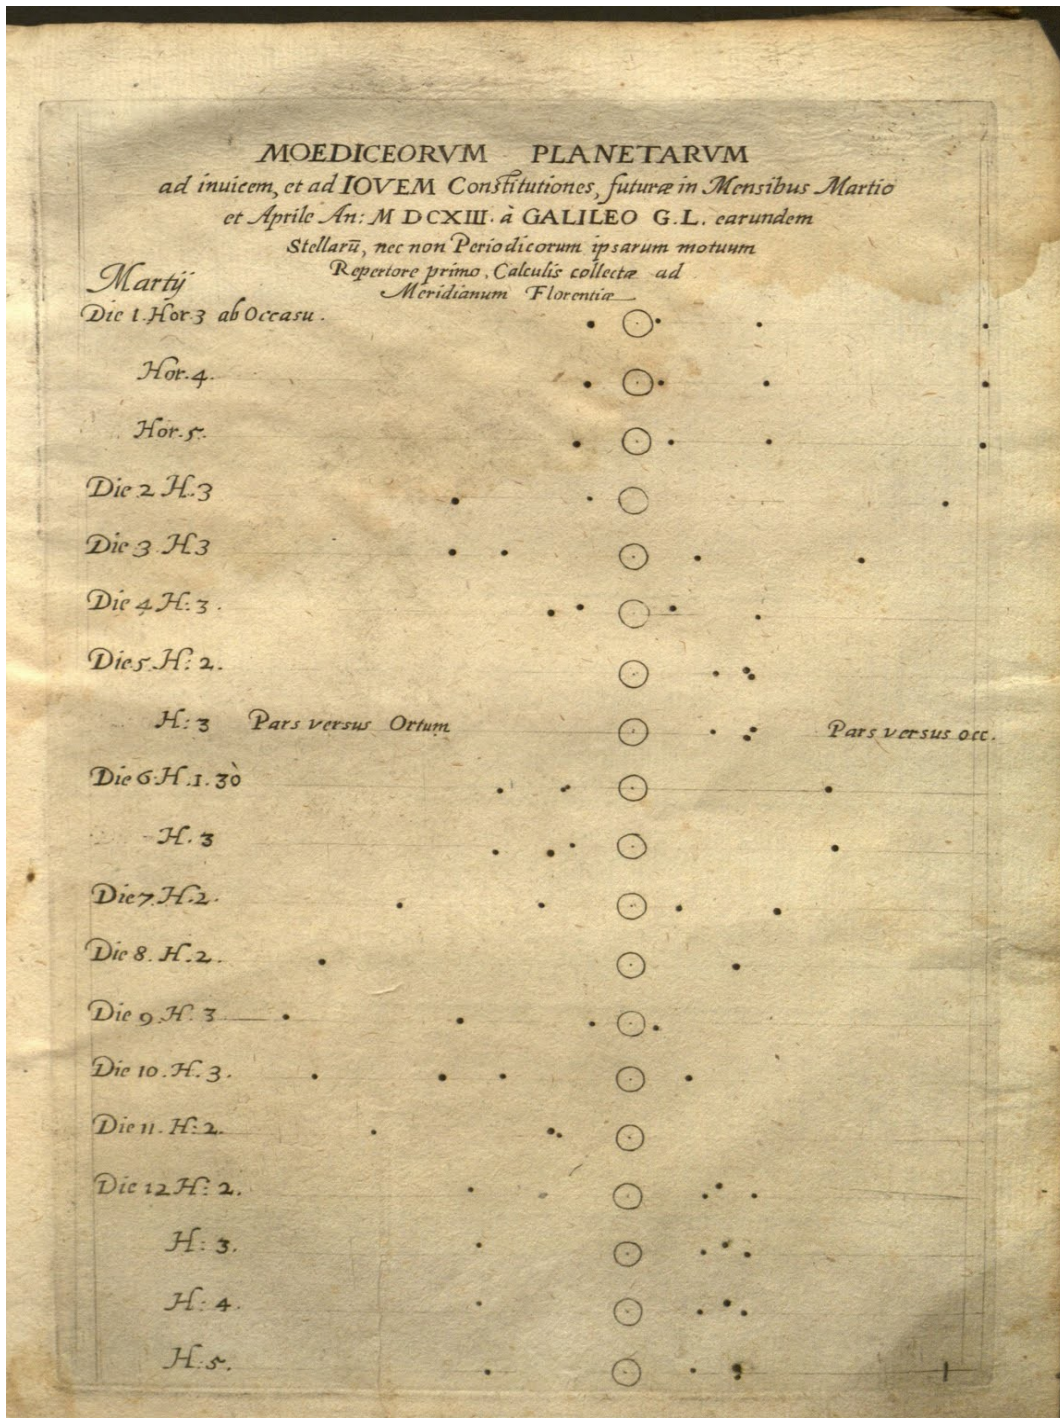 MOEDICEORVM PLANETARVM
ad inuicem, et ad IOVEM Constitutiones, futuræ in Mensibus Martio
et Aprile An: M DCXIII. à GALILEO G.L. earundem
Stellarū, nec non Periodicorum ipsarum motuum
Repertore primo, Calculis collectæ ad
Meridianum Florentiæ
Martij
Die 1. Hor. 3 ab Occasu.
Hor. 4.
Hor. 5.
Die 2 H. 3
Die 3 H 3
Die 4 H: 3.
Die 5. H: 2.
H: 3 Pars versus Ortum Pars versus occ.
Die 6. H. 1. 30
H. 3
Die 7. H. 2.
Die 8. H. 2.
Die 9. H. 3
Die 10. H. 3.
Die 11. H: 2.
Die 12 H: 2.
H: 3.
H: 4.
H: 5.
1